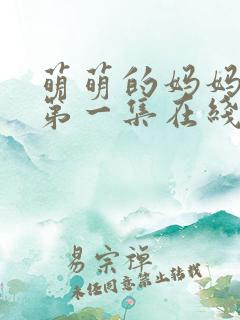 萌萌的妈妈
第一集在线
易宗禅
未经同意禁止转载